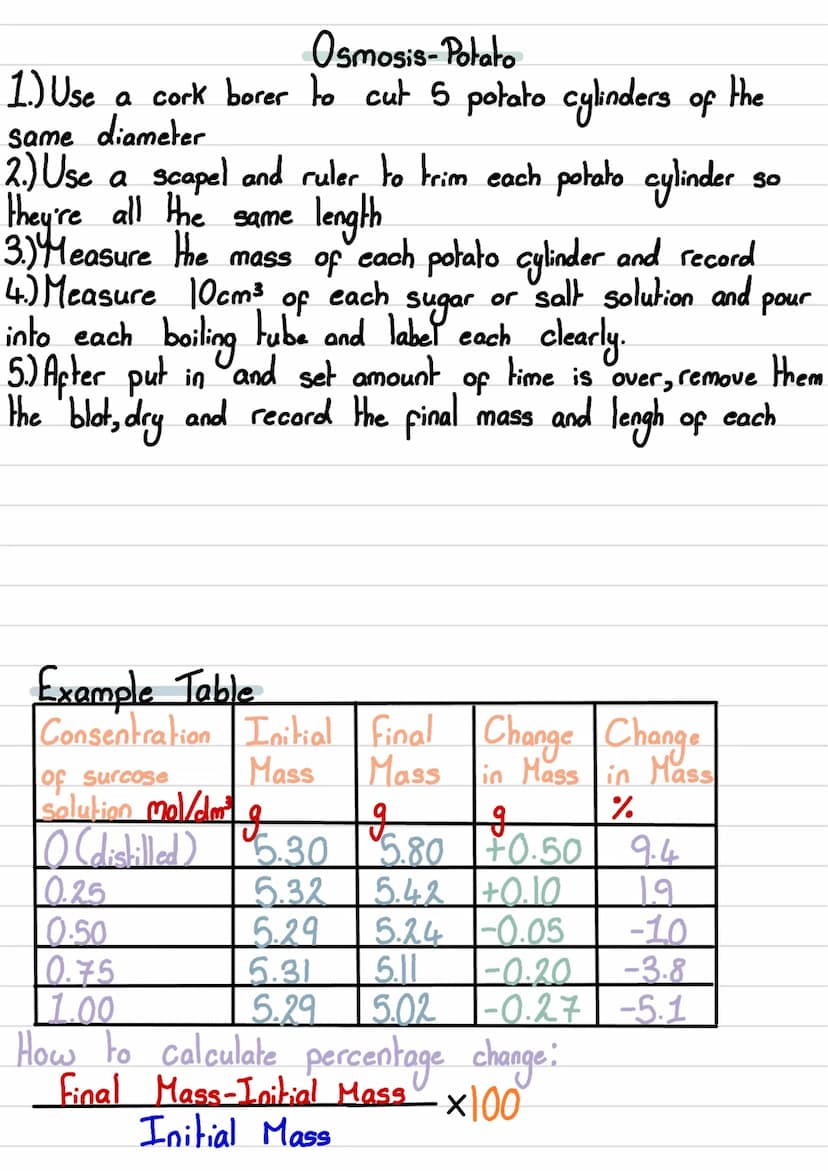 Osmosis-Potato
1.) Use a cork borer to cut 5 potato cylinders of the
same diameter
2.) Use a scapel and ruler to trim each potato cylinder so
they're all the same length
3.) Measure the mass of each potato cylinder and record
4.) Measure 10cm³ of each sugar or salt solution and pour
into each boiling tube and label each clearly.
5.) After put in and set amount of time is over, remove them
the blot, dry and record the final mass and lengh of each
Example Table
Consentration Initial Final Change Change
of surcose Mass Mass in Mass in Mass
solution mol/dm³ g g g %
0 (distilled) 5.30 5.80 +0.50 9.4
0.25 5.32 5.42 +0.10 1.9
0.50 5.29 5.24 -0.05 -10
0.75 5.31 5.11 -0.20 -3.8
1.00 5.29 5.02 -0.27 -5.1
How to calculate percentage change:
Final Mass-Initial Mass ×100
Initial Mass